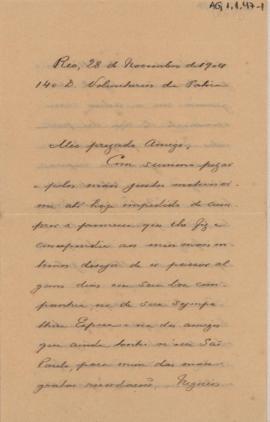 AG 1.1.47-1
Rio, 28 de Novembro de 1904
140 D. Voluntarios da Patria
Meu prezado Amigo,
Com summo pezar
e pelos mais justos motivos
me até hoje impedido de cum
prir a promessa que lhe fiz e
corresponder aos meus mais in
timos desejos de ir passar al
guns dias em sua boa com
panhia, na de sua sympa
thica Esposa e na dos amigos
que ainda tenho n'esse São
Paulo, para mim das mais
gratas recordações. Negocios